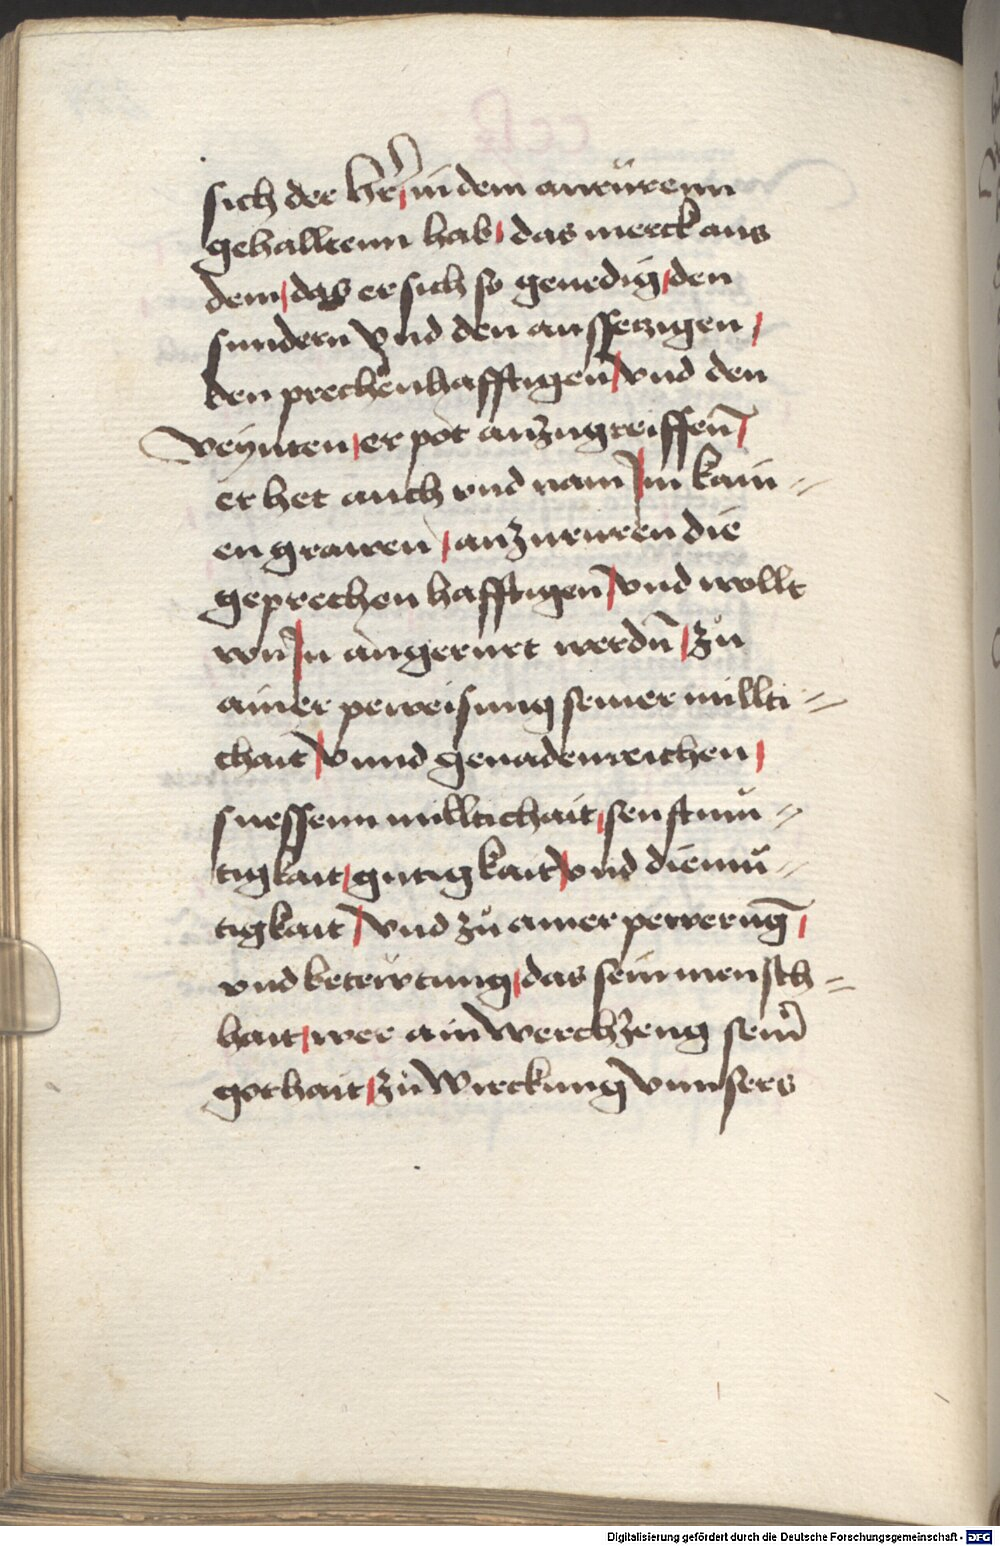 sich der hr̄ / in dem anrürenn
gehalltenn hab / das merck aus
dem / das er sich so genedig / den
sundern vnd den aussetzigen /
den prechenhafftigen̄ / vnd den
veynten / er pot anzugreiffen̄ /
er het auch vnd nam / im kain =
en grawen / anzururen die
geprechen hafftigen̄ / vnd wollt
von / in angerurt werdn̄ / zů
ainer peweisung seiner millti =
chait / vnnd genadenreichen /
suessenn milltichait / senftmü =
tigkait / gutigkait / vnd diemü =
tigkait / vnd zů ainer pewerūg /
vnd betewrtung / das sein mensch =
hait / wer ain werchzeug seinr̄
gothait / zů Wirckung vnnsers
Digitalisierung gefördert durch die Deutsche Forschungsgemeinschaft - DFG